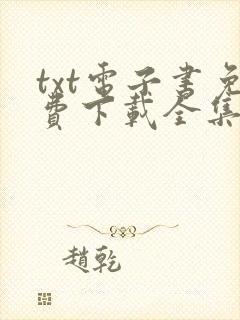 txt電子書免
費下載全集
趙乾